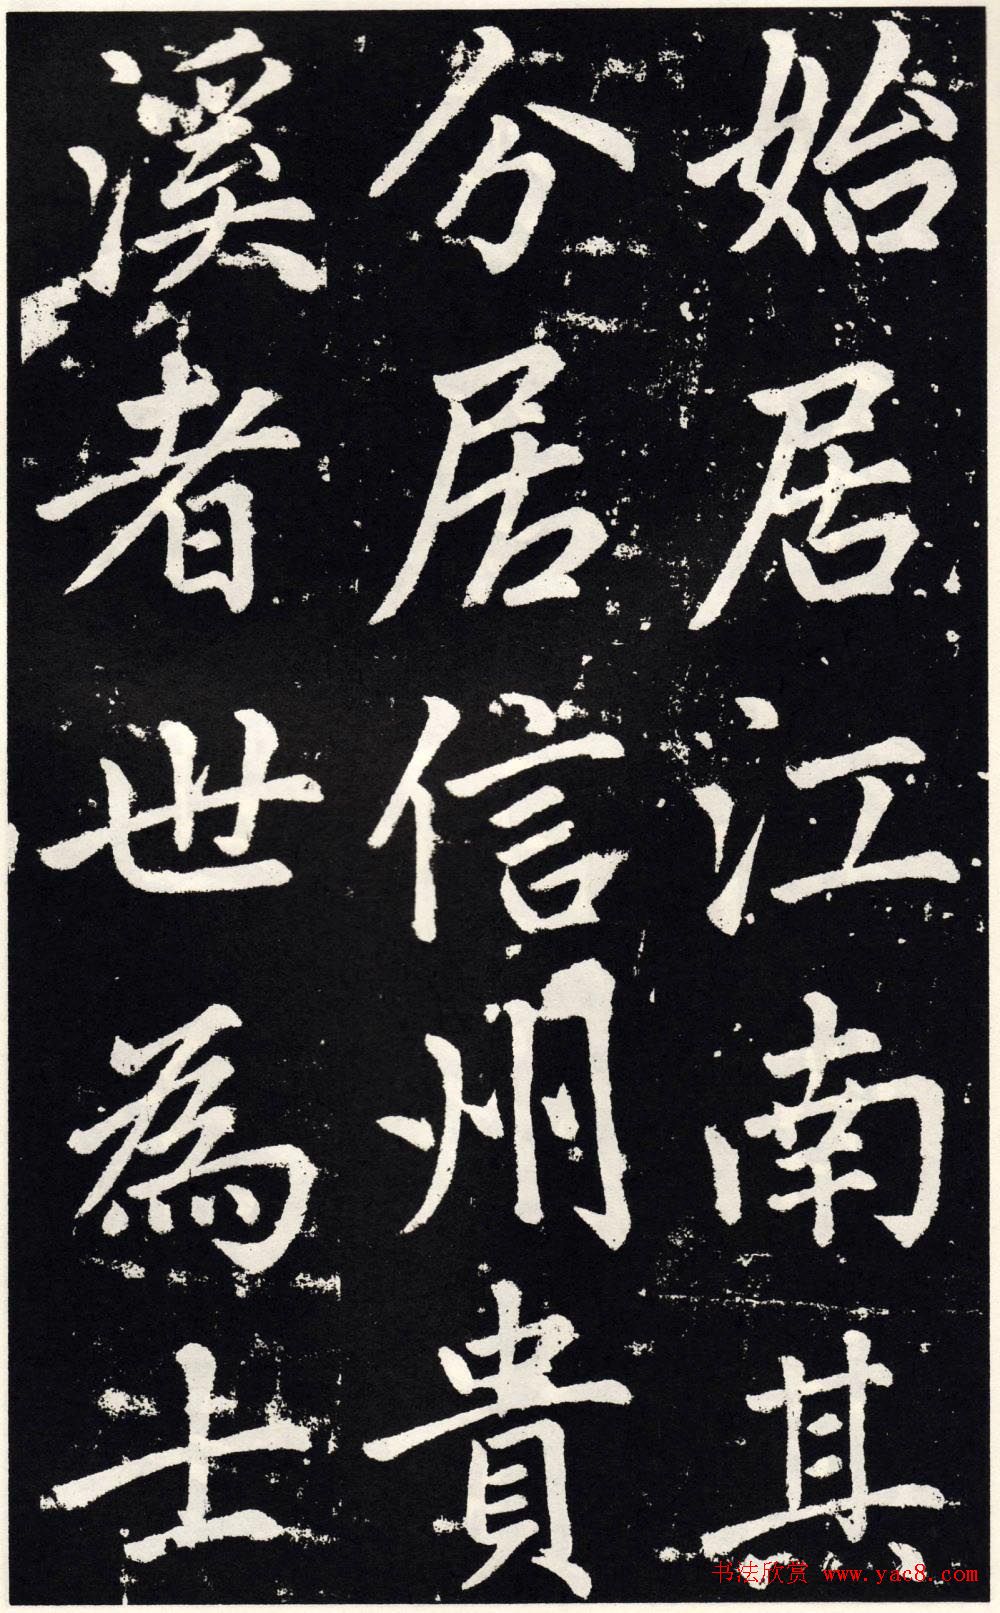 始居江南其
分居信州貴
溪者世為士
书法欣赏 www.yac8.com